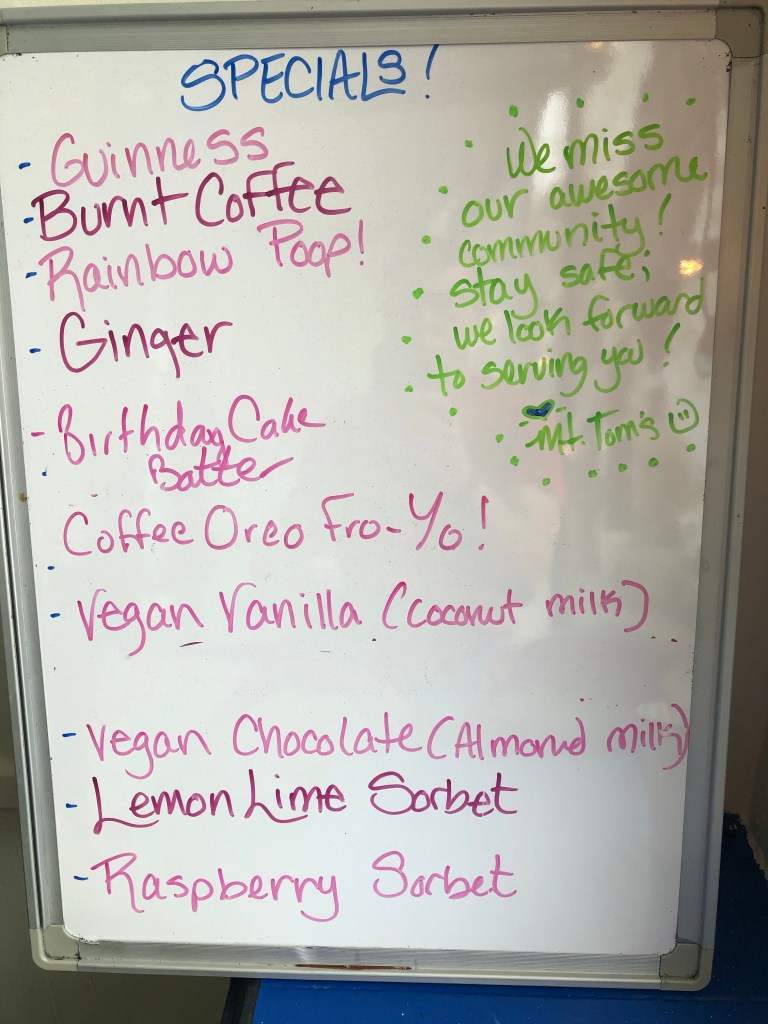 SPECIALS!
- Guinness
- Burnt Coffee
- Rainbow Poop!
- Ginger
- Birthday Cake
- Batter
Coffee Oreo Fro-Yo!
- Vegan Vanilla (coconut milk)
- Vegan Chocolate (Almond milk)
- Lemon Lime Sorbet
- Raspberry Sorbet
We miss
our awesome
community!
stay safe;
we look forward
to serving you!
Mt. Tom's